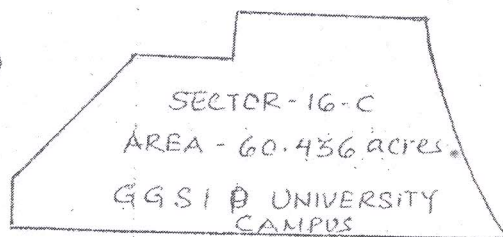 SECTOR-16-C
AREA - 60.456 acres.
GGSIP UNIVERSITY
CAMPUS